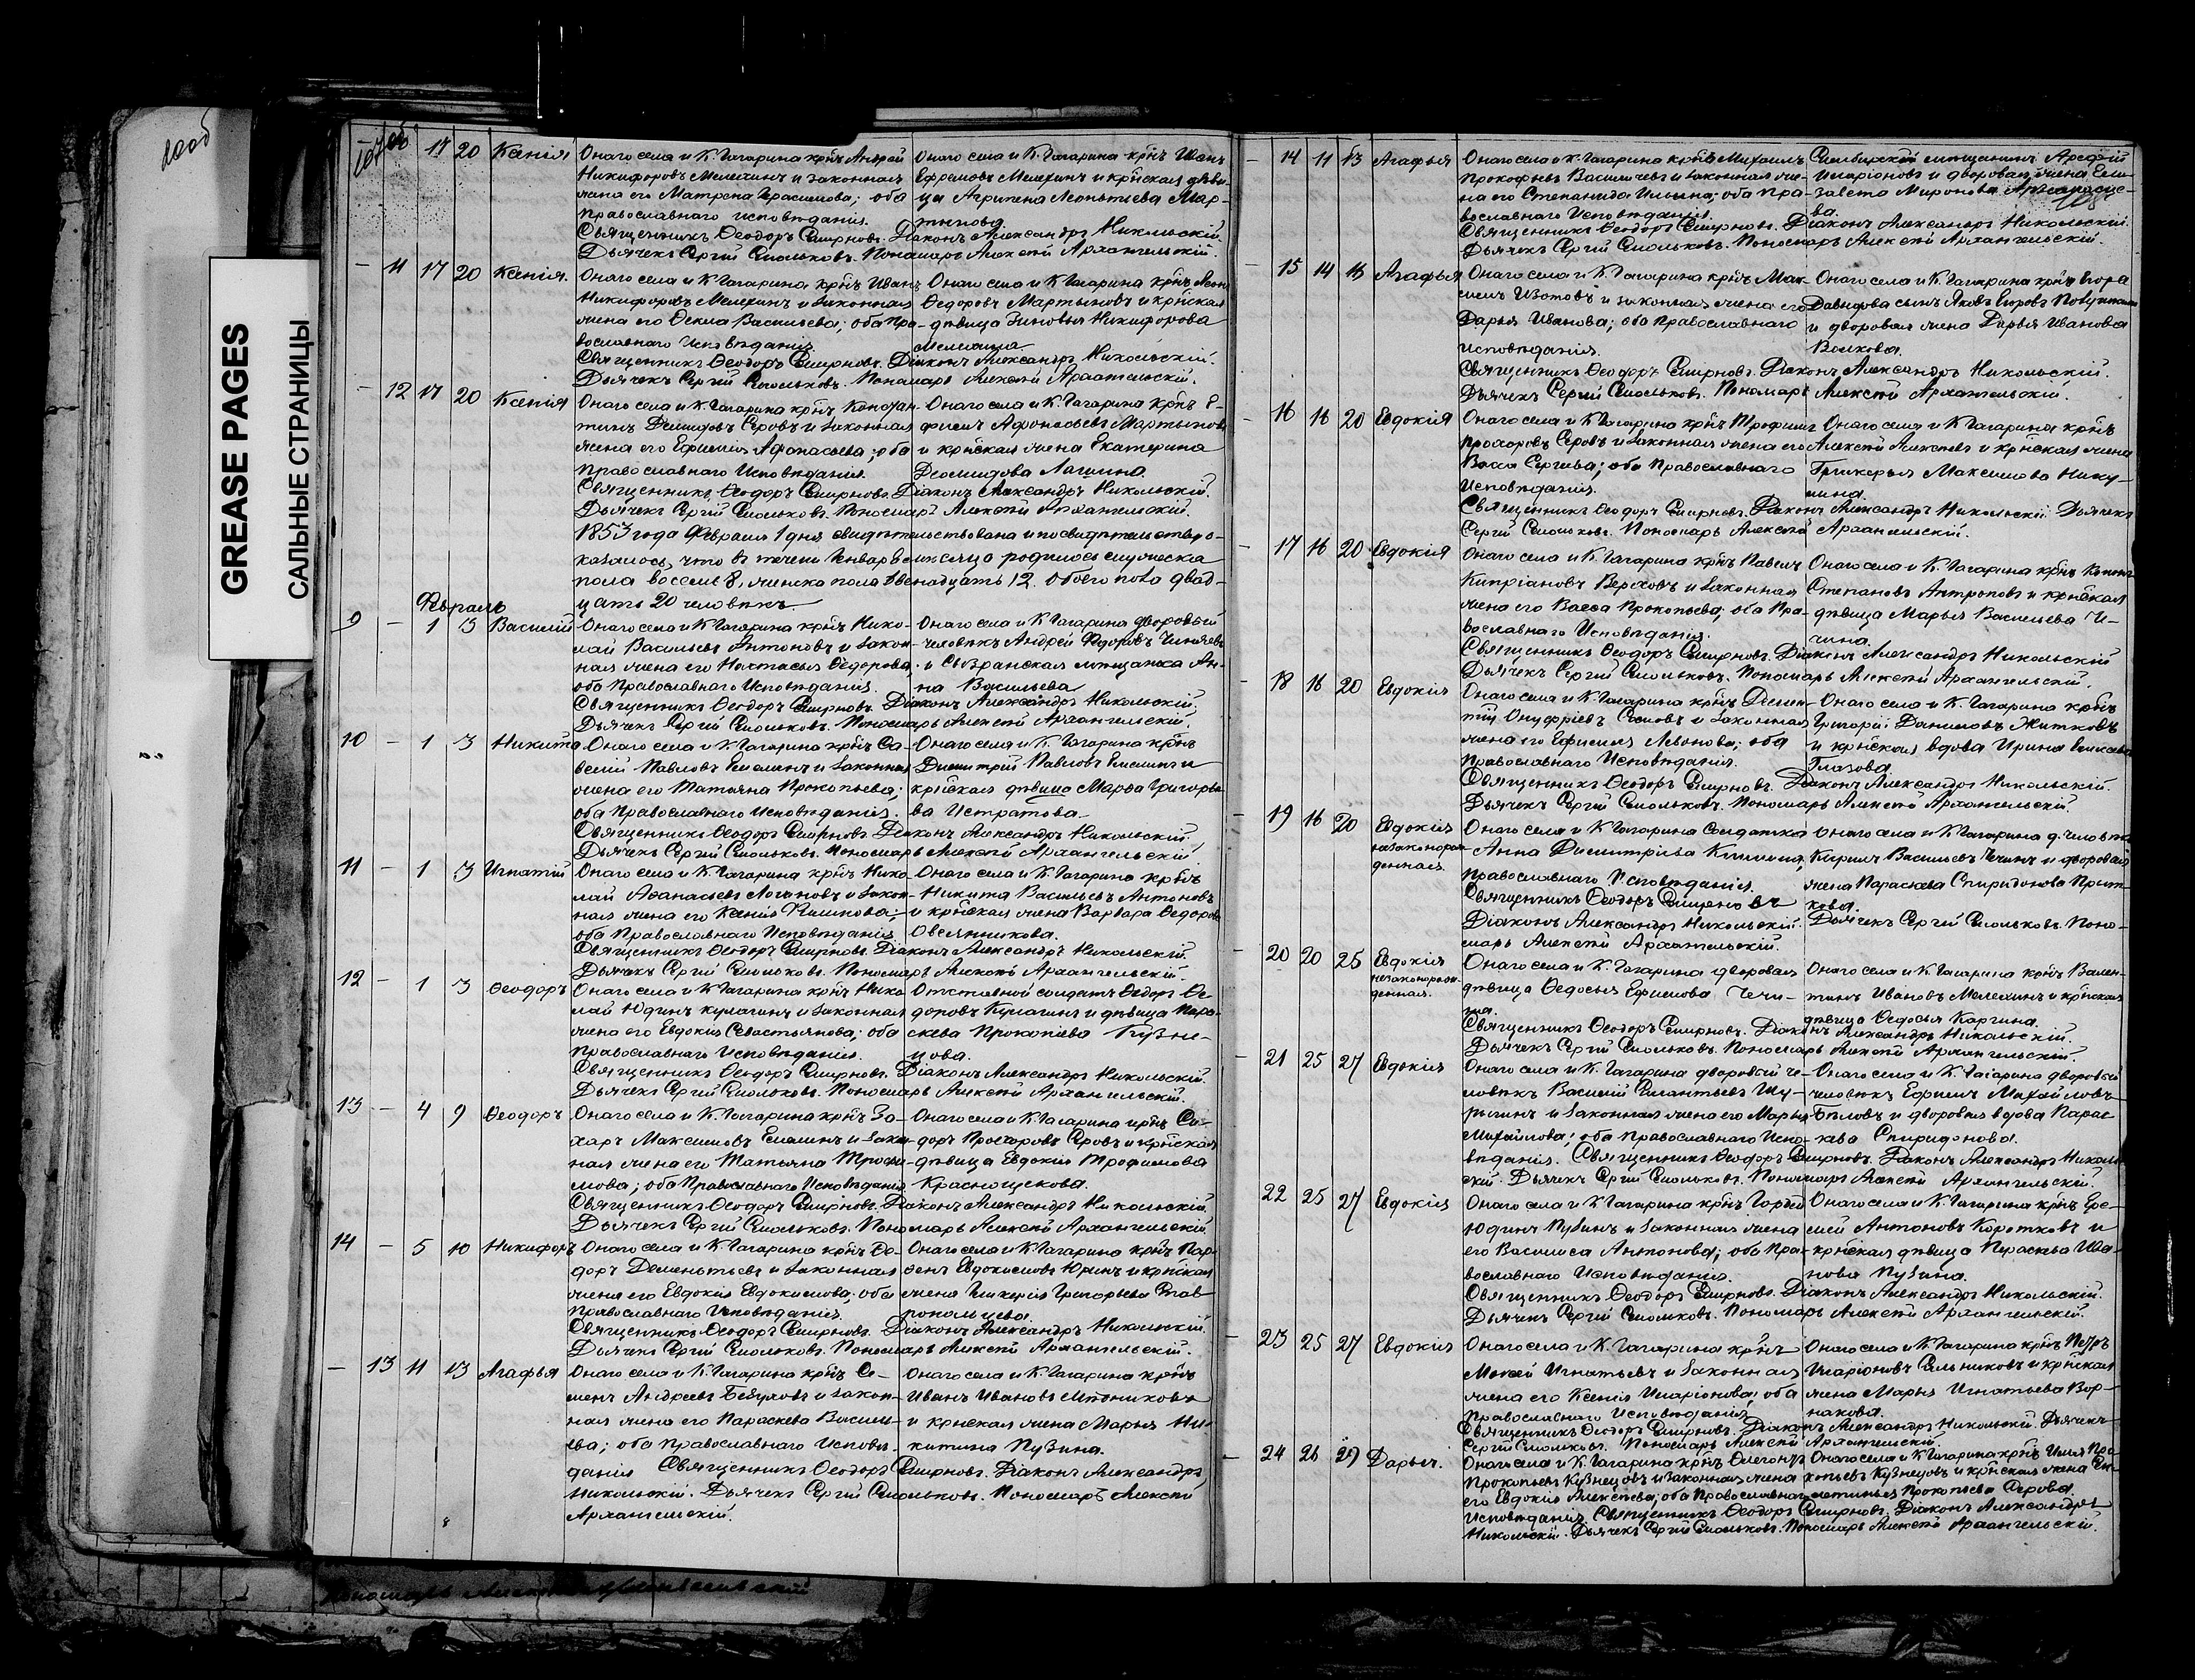 100об
GREASE PAGES
САЛЬНЫЕ СТРАНИЦЫ
107об
17 20 Ксенія Онаго села и К. Гагарина крнъ Андрей
Никифоровъ Мелехинъ и законная
жена его Матрена Герасимова; оба
православнаго исповѣданія.
Онаго села и К. Гагарина крнъ Иванъ
Ефремовъ Мелехинъ и крнская дѣви-
ца Агрипена Леонтьева Мар-
тынова
Священникъ Ѳеодоръ Смирновъ. Діаконъ Александръ Никольскій.
Дьячекъ Сергій Смольковъ. Пономарь Алексѣй Архангельскій.
— 11 17 20 Ксенія. Онаго села и К. Гагарина крнъ Иванъ
Никифоровъ Мелехинъ и законная
жена его Ѳекла Васильева; оба пра-
вославнаго Исповѣданія
Онаго села и К. Гагарина крнъ
Ѳедоровъ Мартыновъ и крнская
дѣвица Зиновья Никифорова
Священникъ Ѳеодоръ Смирновъ. Діаконъ Александръ Никольскій.
Дьячекъ Сергій Смольковъ. Пономарь Алексѣй Архангельскій.
— 12 17 20 Ксенія Онаго села и К. Гагарина крнъ Констан-
тинъ Демидовъ Серовъ и законная
жена его Ефимія Афонасьева; оба
православнаго Исповѣданія.
Онаго села и К. Гагарина крнъ Е-
фимъ Афонасьевъ Мартыновъ
и крнская жена Екатерина
Деомидова Лашина.
Священникъ Ѳеодоръ Смирновъ. Діаконъ Александръ Никольскій.
Дьячекъ Сергій Смольковъ. Пономарь Алексѣй Архангельскій.
1853 года Февраля 1 дня свидѣтельствована и по свидѣтельству о-
казалось, что въ течени Январѣ мѣсяцѣ родилось мужеска
пола восемь 8, женска пола двенадцать 12 обоего пола двад-
цать 20 человѣкъ
Февраль
9 — 1 3 Василій Онаго села и К. Гагарина крнъ Нико-
лай Васильевъ Антоновъ и закон-
ная жена его Настасья Ѳедорова;
оба Православнаго Исповѣданія.
Онаго села и К. Гагарина дворовый
человѣкъ Андрей Ѳедоровъ
и Сызранская мѣщанка Ан-
на Васильева
Священникъ Ѳеодоръ Смирновъ. Діаконъ Александръ Никольскій.
Дьячекъ Сергій Смольковъ. Пономарь Алексѣй Архангельскій.
10 — 1 3 Никита Онаго села и К. Гагарина крнъ Са-
велій Павловъ Емелинъ и законная
жена его Татьяна Прокопьева;
оба Православнаго Исповѣданія.
Онаго села и К. Гагарина крнъ
Димитрій Павловъ Емелинъ и
крнская дѣвица Марѳа Григорье-
ва Истратова
Священникъ Ѳеодоръ Смирновъ Діаконъ Александръ Никольскій.
Дьячекъ Сергій Смольковъ. Пономарь Алексѣй Архангельскій
11 — 1 3 Игнатій Онаго села и К. Гагарина крнъ Нико-
лай Аѳанасьевъ Логановъ и закон-
ная жена его Ксенія
оба Православнаго Исповѣданія
Онаго села и К. Гагарина крнъ
Никита Васильевъ Антоновъ
и крнская жена Варвара Ѳедорова
Овсянникова.
Священникъ Ѳеодоръ Смирновъ. Діаконъ Александръ Никольскій.
Дьячекъ Сергій Смольковъ. Пономарь Алексѣй Архангельскій.
12 — 1 3 Ѳеодоръ Онаго села и К. Гагарина крнъ Нико-
лай Юдинъ Кулагинъ и законная
жена его Евдокія Севастьянова; оба
православнаго Исповѣданія.
Отставной солдатъ Ѳедоръ Ѳе-
доровъ Кулагинъ и дѣвица Пара-
скева Прокопіева Кузне-
цова.
Священникъ Ѳеодоръ Смирновъ. Діаконъ Александръ Никольскій.
Дьячекъ Сергій Смольковъ. Пономарь Алексѣй Архангельскій.
13 — 4 9 Ѳеодоръ Онаго села и К. Гагарина крнъ За-
харъ Максимовъ Емелинъ и закон-
ная жена его Татьяна Трофи-
мова; оба Православнаго Исповѣданія
Онаго села и К. Гагарина крнъ Си-
доръ Прохоровъ Серовъ и крнская
дѣвица Евдокія Трофимова
Краснощекова.
Священникъ Ѳеодоръ Смирновъ. Діаконъ Александръ Никольскій.
Дьячекъ Сергій Смольковъ. Пономарь Алексѣй Архангельскій.
14 — 5 10 Никифоръ Онаго села и К. Гагарина крнъ Ѳе-
доръ Дементьевъ и законная
жена его Евдокія Евдокимова; оба
Православнаго Исповѣданія.
Онаго села и К. Гагарина крнъ Пар-
фенъ Евдокимовъ Юринъ и крнская
жена Гликерія Григорьева Став-
ропольцева.
Священникъ Ѳеодоръ Смирновъ. Діаконъ Александръ Никольскій.
Дьячекъ Сергій Смольковъ. Пономарь Алексѣй Архангельскій.
— 13 11 13 Агафья Онаго села и К. Гагарина крнъ Се-
менъ Андреевъ и закон-
ная жена его Параскева Василь-
ева; оба православнаго Исповѣ-
данія
Онаго села и К. Гагарина крнъ
Иванъ Ивановъ Мѣдниковъ
и крнская жена Марья Ни-
китина Пузина.
Священникъ Ѳеодоръ Смирновъ. Діаконъ Александръ
Никольскій. Дьячекъ Сергій Смольковъ. Пономарь Алексѣй
Архангельскій.
108
— 14 11 13 Агафья Онаго села и К. Гагарина крнъ Михаилъ
Прокофьевъ Васильевъ и законная же-
на его Степанида Ильина; оба пра-
вославнаго Исповѣданія.
Симбирскій мѣщанинъ Арефій
Иларіоновъ и дворовая жена Ели-
завета Миронова
ва.
Священникъ Ѳеодоръ Смирновъ. Діаконъ Александръ Никольскій.
Дьячекъ Сергій Смольковъ. Пономарь Алексѣй Архангельскій.
— 15 14 15 Агафья Онаго села и К. Гагарина крнъ Мак-
симъ Изотовъ и законная жена его
Дарья Иванова; оба Православнаго
исповѣданія.
Онаго села и К. Гагарина крнъ Егора
Давыдова сынъ Яковъ Егоровъ
и дворовая жена Дарья Иванова
Волкова.
Священникъ Ѳеодоръ Смирновъ. Діаконъ Александръ Никольскій.
Дьячекъ Сергій Смольковъ. Пономарь Алексѣй Архангельскій.
— 16 16 20 Евдокія Онаго села и К. Гагарина крнъ Трофимъ
Прохоровъ Серовъ и законная жена его
Васса Сергѣева; оба Православнаго
Исповѣданія.
Онаго села и К. Гагарина крнъ
Алексѣй Алексѣевъ и крнская жена
Гликерья Максимова Нику-
лина.
Священникъ Ѳеодоръ Смирновъ. Діаконъ Александръ Никольскій. Дьячекъ
Сергій Смольковъ. Пономарь Алексѣй Архангельскій.
— 17 16 20 Евдокія Онаго села и К. Гагарина крнъ Павелъ
Кипріановъ Верховъ и законная
жена его Васса Прокопьева; оба Пра-
вославнаго Исповѣданія.
Онаго села и К. Гагарина крнъ
Степановъ Антроповъ и крнская
дѣвица Марья Васильева
Священникъ Ѳеодоръ Смирновъ. Діаконъ Александръ Никольскій
Дьячекъ Сергій Смольковъ. Пономарь Алексѣй Архангельскій.
— 18 16 20 Евдокія Онаго села и К. Гагарина крнъ Демен-
тій Онуфріевъ и законная
жена его Ефимія Левонова; оба
Православнаго Исповѣданія.
Онаго села и К. Гагарина крнъ
Григорій Даниловъ Житковъ
и крнская вдова Ирина
Глазова
Священникъ Ѳеодоръ Смирновъ. Діаконъ Александръ Никольскій.
Дьячекъ Сергій Смольковъ. Пономарь Алексѣй Архангельскій.
— 19 16 20 Евдокія
незаконорож-
денная
Онаго села и К. Гагарина Солдатка
Анна Димитріева
Православнаго Исповѣданія.
Онаго села и К. Гагарина д. человѣкъ
Кирилъ Васильевъ Чечинъ и дворовая
жена Параскева Спиридонова
Священникъ Ѳеодоръ Смирновъ
Діаконъ Александръ Никольскій. Дьячекъ Сергій Смольковъ. Поно-
марь Алексѣй Архангельскій.
— 20 20 25 Евдокія
незаконорож-
денная.
Онаго села и К. Гагарина дворовая
дѣвица Ѳедосья Ефимова Чечи-
на.
Онаго села и К. Гагарина крнъ Вален-
тинъ Ивановъ Мелехинъ и крнская
дѣвица Ѳедосья Каргина.
Священникъ Ѳеодоръ Смирновъ. Діаконъ Александръ Никольскій.
Дьячекъ Сергій Смольковъ. Пономарь Алексѣй Архангельскій.
— 21 25 27 Евдокія Онаго села и К. Гагарина дворовый че-
ловѣкъ Василій
и законная жена его Марья
Михайлова; оба православнаго Испо-
вѣданія.
Онаго села и К. Гагарина дворовый
человѣкъ Ефимъ Михайловъ
Бѣловъ и дворовая вдова Парас-
кева Спиридонова.
Священникъ Ѳеодоръ Смирновъ. Діаконъ Александръ Николь-
скій. Дьячекъ Сергій Смольковъ. Пономарь Алексѣй Архангельскій.
— 22 25 27 Евдокія Онаго села и К. Гагарина крнъ Гордѣй
Юдинъ Пузинъ и законная жена
его Василиса Антонова; оба Пра-
вославнаго Исповѣданія.
Онаго села и К. Гагарина крнъ Ере-
мей Антоновъ Коротковъ и
крнская дѣвица Параскева Ива-
нова Пузина.
Священникъ Ѳеодоръ Смирновъ. Діаконъ Александръ Никольскій.
Дьячекъ Сергій Смольковъ. Пономарь Алексѣй Архангельскій.
— 23 25 27 Евдокія Онаго села и К. Гагарина крнъ
Мокей Игнатьевъ и законная
жена его Ксенія Иларіонова; оба
Православнаго Исповѣданія
Онаго села и К. Гагарина крнъ Петръ
Иларіоновъ и крнская
жена Марья Игнатьева Вор-
накова.
Священникъ Ѳеодоръ Смирновъ. Діаконъ Александръ Никольскій. Дьячекъ
Сергій Смольковъ. Пономарь Алексѣй Архангельскій.
— 24 26 27 Дарья. Онаго села и К. Гагарина крнъ
Прокопьевъ Кузнецовъ и законная жена
его Евдокія Алексѣева; оба Православнаго
Исповѣданія
Онаго села и К. Гагарина крнъ Илья Про-
копьевъ Кузнецовъ и крнская жена
Прокопьева Серова.
Священникъ Ѳеодоръ Смирновъ. Діаконъ Александръ
Никольскій. Дьячекъ Сергій Смольковъ. Пономарь Алексѣй Архангельскій.